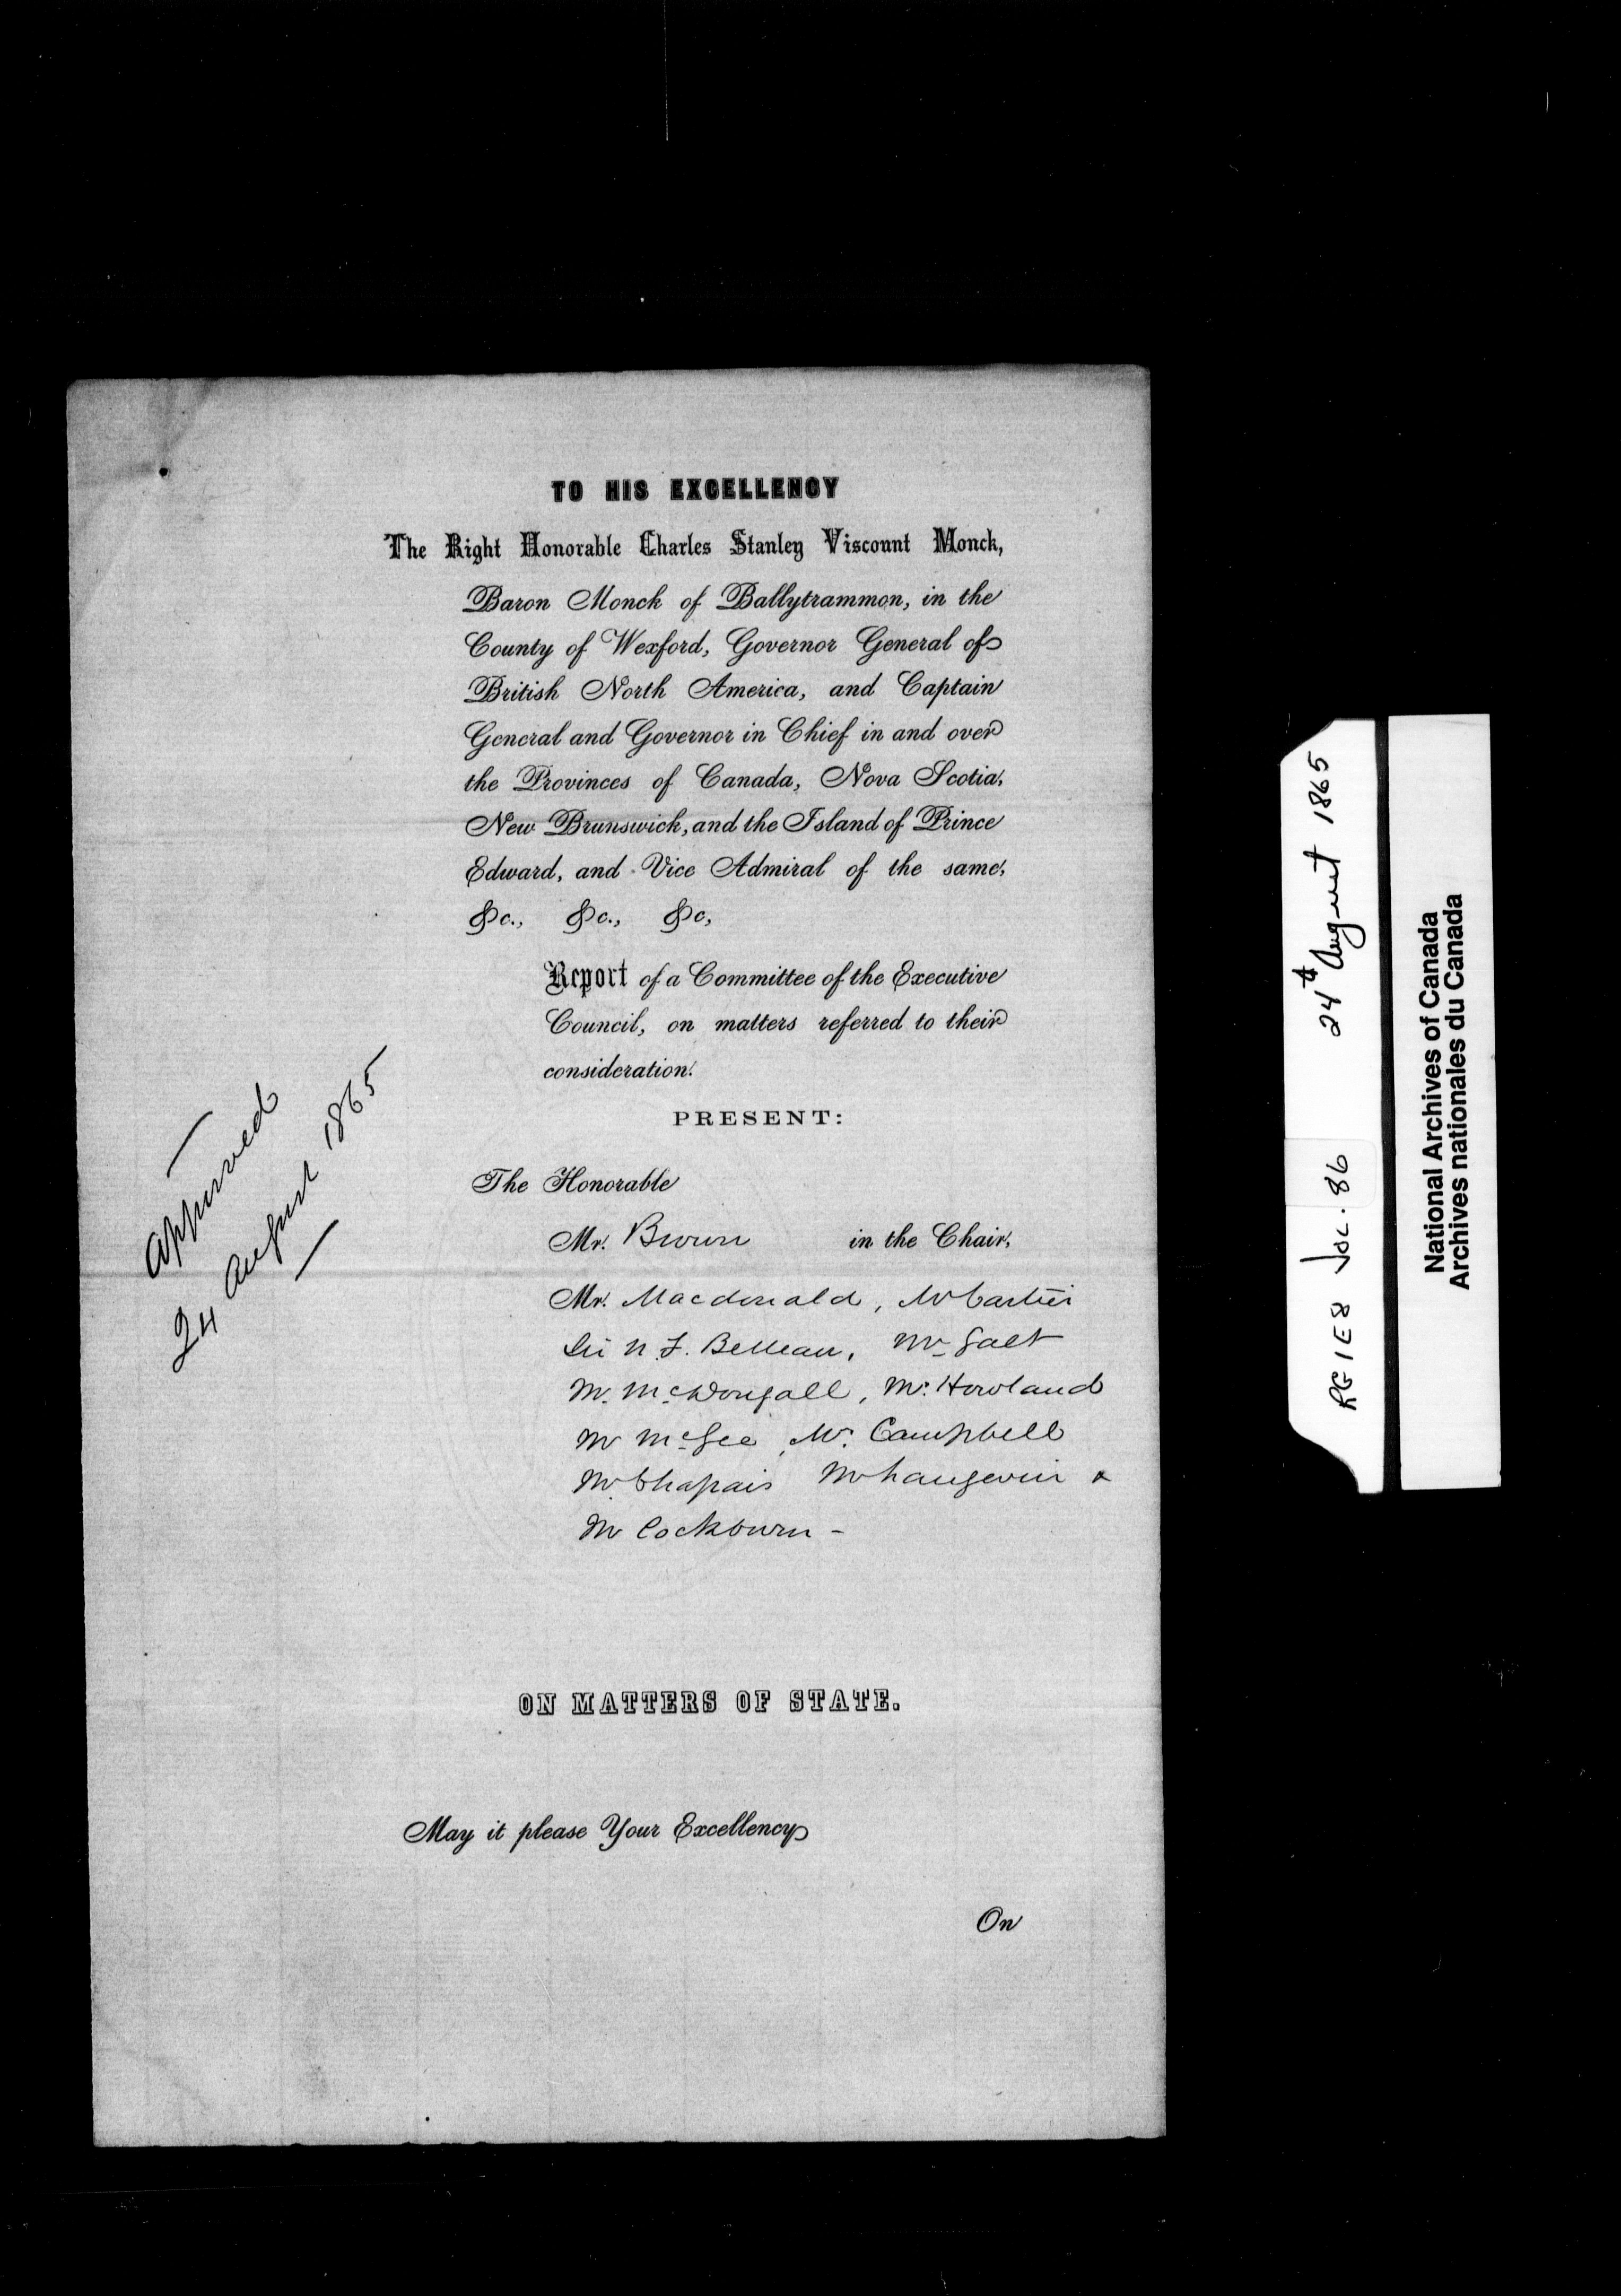 TO HIS EXCELLENCY
The Right Honorable Charles Stanley Viscount Monck,
Baron Monck of Ballytrammon, in the
County of Wexford, Governor General of
British North America, and Captain
General and Governor in Chief in and over
the Provinces of Canada, Nova Scotia,
New Brunswick, and the Island of Prince
Edward, and Vice Admiral of the same,
&c., &c., &c,
Report of a Committee of the Executive
Council, on matters referred to their
consideration.
PRESENT:
The Honorable
Mr. Brown in the Chair,
Mr. Macdonald, Mr Cartier
Sir N. F. Belleau, Mr Galt
Mr. McDougall, Mr. Howland
Mr McGee, Mr. Campbell
Mr Chapais Mr Langevin &
Mr Cockburn -
Approved
24 August 1865
ON MATTERS OF STATE.
May it please Your Excellency
On
RG 1 E 8 Vol. 86 24th August 1865
National Archives of Canada
Archives nationales du Canada